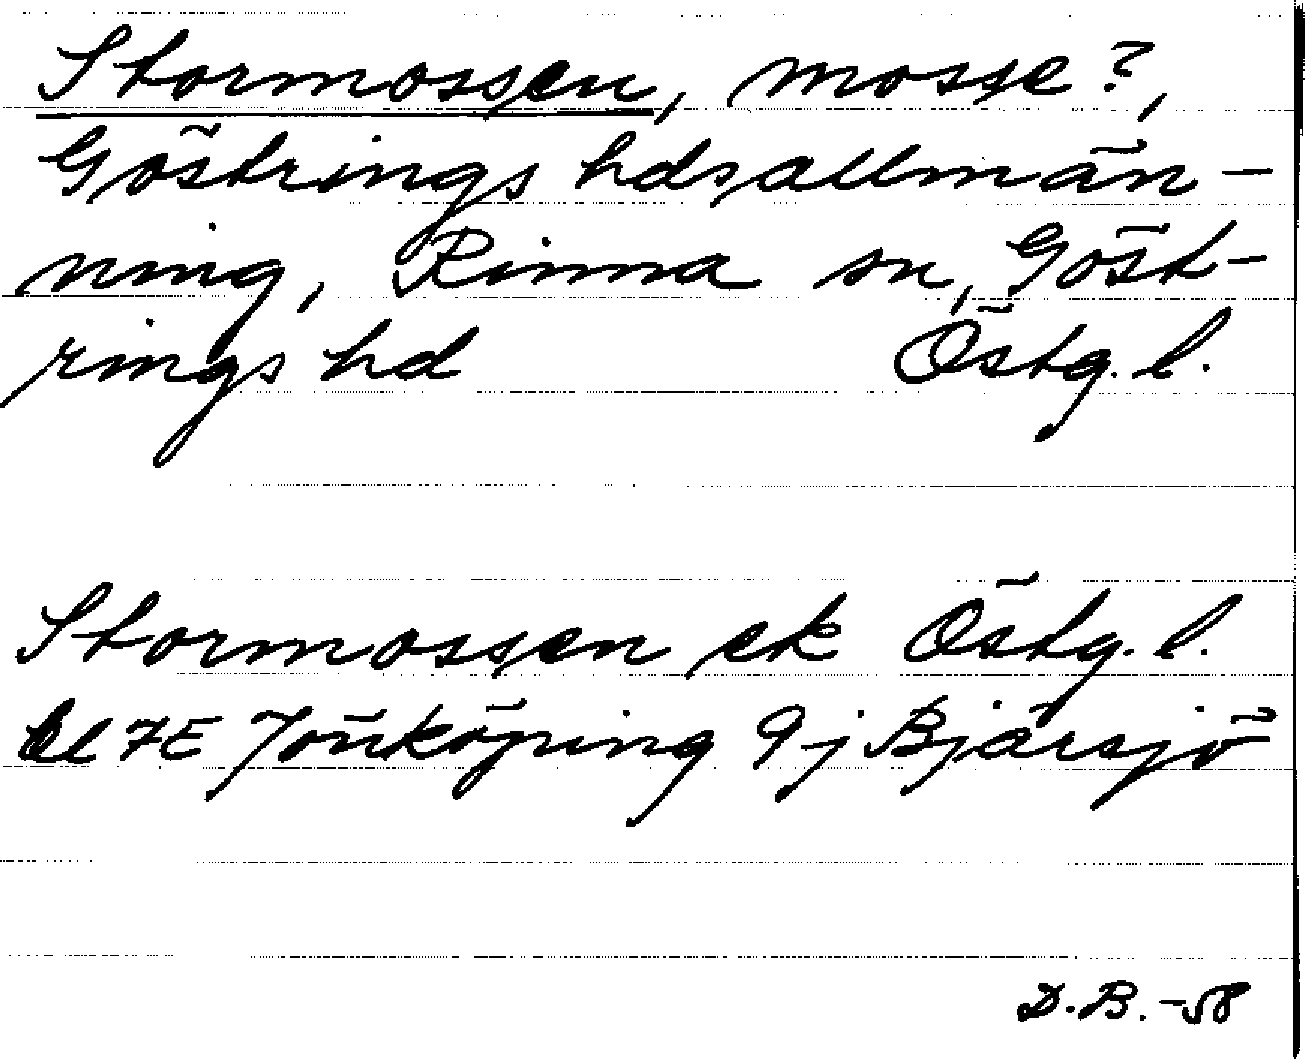 Stormossen, mosse?,
Göstrings hdsallmän-
ning, Rinna sn, Göst-
rings hd Östg. l.
Stormossen ek Östg. l.
bl 7E Jönköping 9j Bjärsjö
D.B. -58